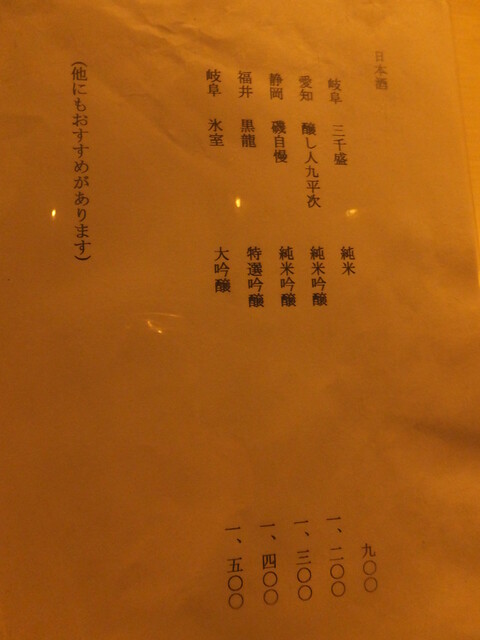 日本酒
岐阜 三千盛 純米 九〇〇
愛知 醸し人九平次 純米吟醸 一、二〇〇
静岡 磯自慢 純米吟醸 一、三〇〇
福井 黒龍 特選吟醸 一、四〇〇
岐阜 氷室 大吟醸 一、五〇〇
(他にもおすすめがあります)